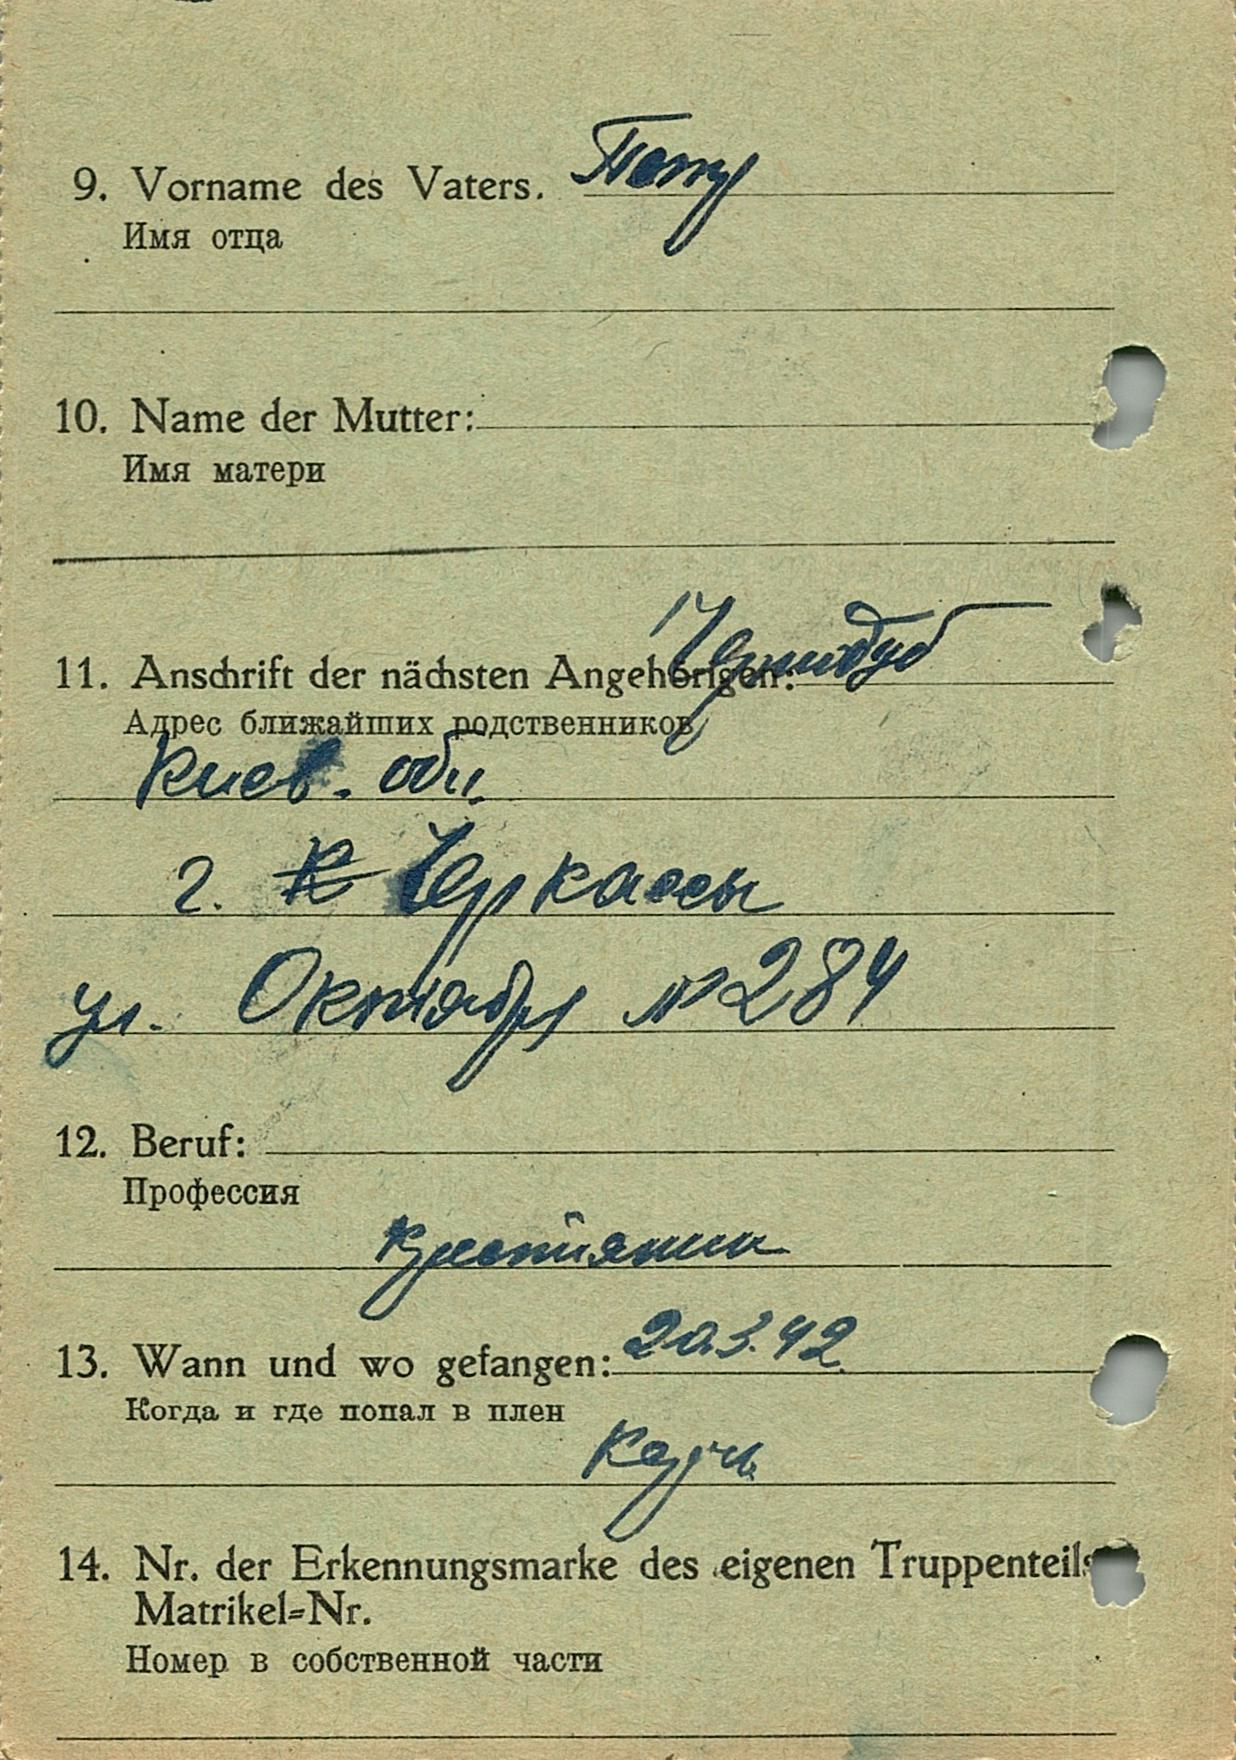 9. Vorname des Vaters. Петр
Имя отца
10. Name der Mutter:
Имя матери
11. Anschrift der nächsten Angehörigen:
Адрес ближайших родственников
Киев. обл.
г. Черкассы
ул. Октября № 284
12. Beruf:
Профессия
крестianин
13. Wann und wo gefangen: 20.3.42
Когда и где попал в плен
Керчь
14. Nr. der Erkennungsmarke des eigenen Truppenteils
Matrikel=Nr.
Номер в собственной части